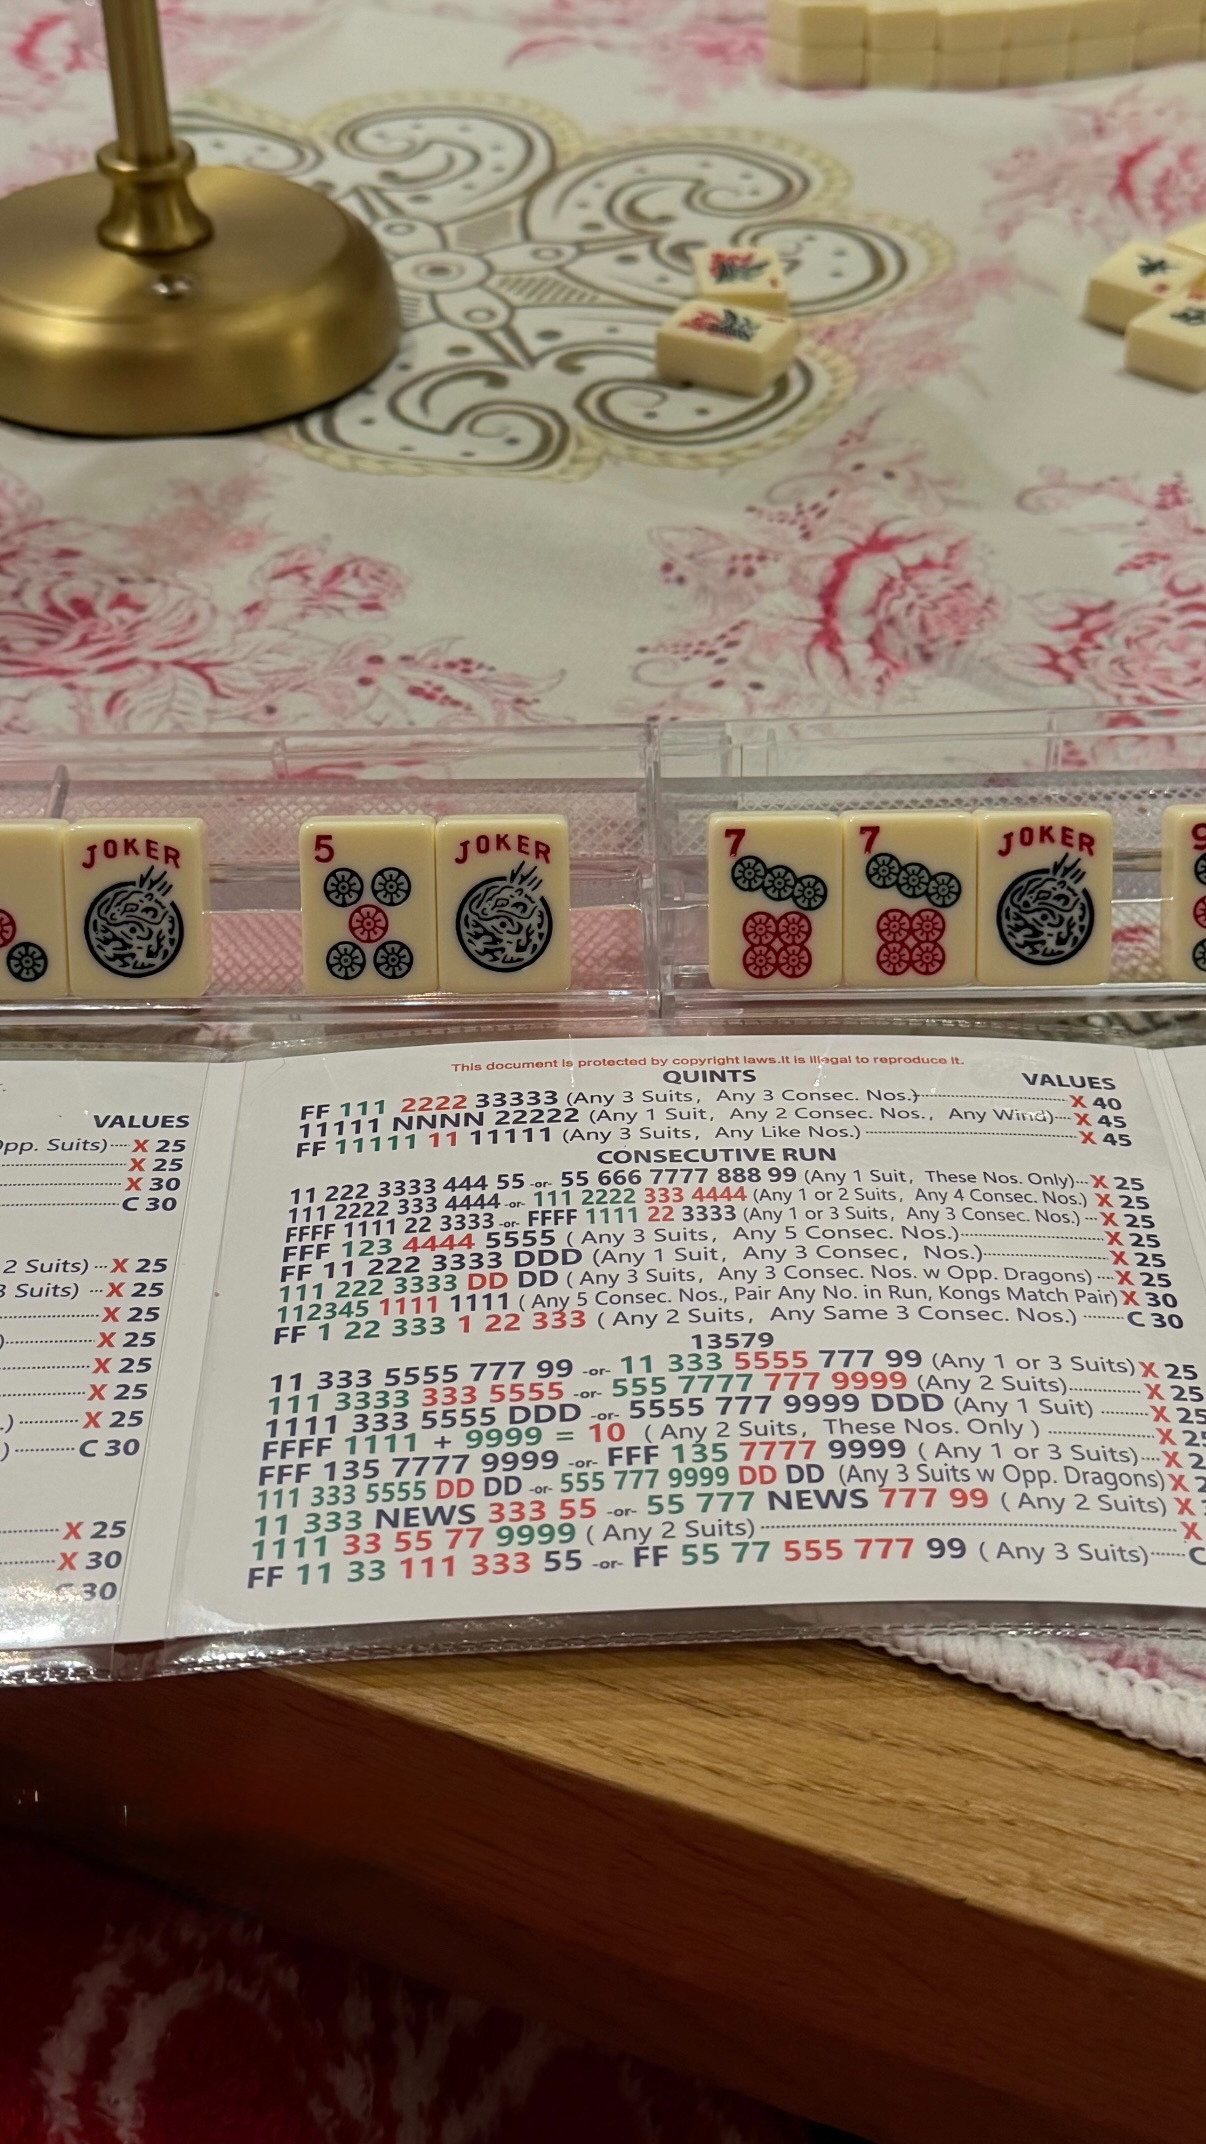 JOKER
5
JOKER
7
7
JOKER
9
This document is protected by copyright laws.It is illegal to reproduce it.
QUINTS
VALUES
FF 111 2222 33333 (Any 3 Suits, Any 3 Consec. Nos.) X 40
11111 NNNN 22222 (Any 1 Suit, Any 2 Consec. Nos., Any Wind) X 45
FF 11111 11 11111 (Any 3 Suits, Any Like Nos.) X 45
CONSECUTIVE RUN
11 222 3333 444 55 -or- 55 666 7777 888 99 (Any 1 Suit, These Nos. Only) X 25
111 2222 333 4444 -or- 111 2222 333 4444 (Any 1 or 2 Suits, Any 4 Consec. Nos.) X 25
FFFF 1111 22 3333 -or- FFFF 1111 22 3333 (Any 1 or 3 Suits, Any 3 Consec. Nos.) X 25
FFF 123 4444 5555 ( Any 3 Suits, Any 5 Consec. Nos.) X 25
FF 11 222 3333 DDD (Any 1 Suit, Any 3 Consec, Nos.) X 25
111 222 3333 DD DD ( Any 3 Suits, Any 3 Consec. Nos. w Opp. Dragons) X 25
112345 1111 1111 ( Any 5 Consec. Nos., Pair Any No. in Run, Kongs Match Pair) X 30
FF 1 22 333 1 22 333 ( Any 2 Suits, Any Same 3 Consec. Nos.) C 30
13579
11 333 5555 777 99 -or- 11 333 5555 777 99 (Any 1 or 3 Suits) X 25
111 3333 333 5555 -or- 555 7777 777 9999 (Any 2 Suits) X 25
1111 333 5555 DDD -or- 5555 777 9999 DDD (Any 1 Suit) X 25
FFFF 1111 + 9999 = 10 ( Any 2 Suits, These Nos. Only ) X 2
FFF 135 7777 9999 -or- FFF 135 7777 9999 ( Any 1 or 3 Suits) X 2
111 333 5555 DD DD -or- 555 777 9999 DD DD (Any 3 Suits w Opp. Dragons) X 2
11 333 NEWS 333 55 -or- 55 777 NEWS 777 99 ( Any 2 Suits) X
1111 33 55 77 9999 ( Any 2 Suits) X
FF 11 33 111 333 55 -or- FF 55 77 555 777 99 ( Any 3 Suits) C
VALUES
pp. Suits) X 25
X 25
X 30
C 30
2 Suits) X 25
Suits) X 25
X 25
X 25
X 25
X 25
.) X 25
) C 30
X 25
X 30
30